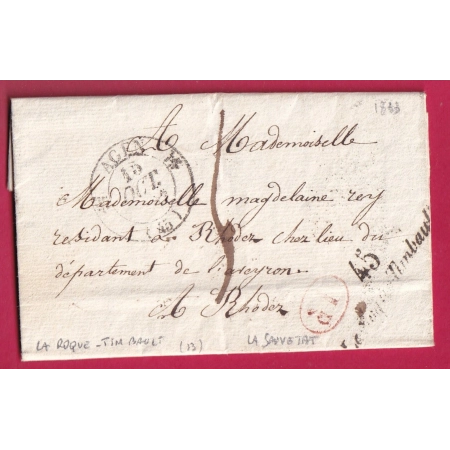 1833
AGEN
15
OCT.
(45)
A Mademoiselle
Mademoiselle magdelaine rey
residant a Rhodez chez lieu du
département de l'aveyron
A Rhodez
45
Timbault
1D
LA ROQUE - TIM BAULT (13) LA SAUVETAT